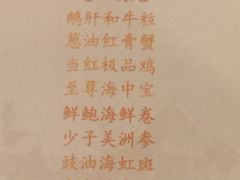 鹅肝和牛粒
葱油红膏蟹
当红极品鸡
至尊海中宝
鲜鲍海鲜卷
少子美洲参
豉油海虹斑